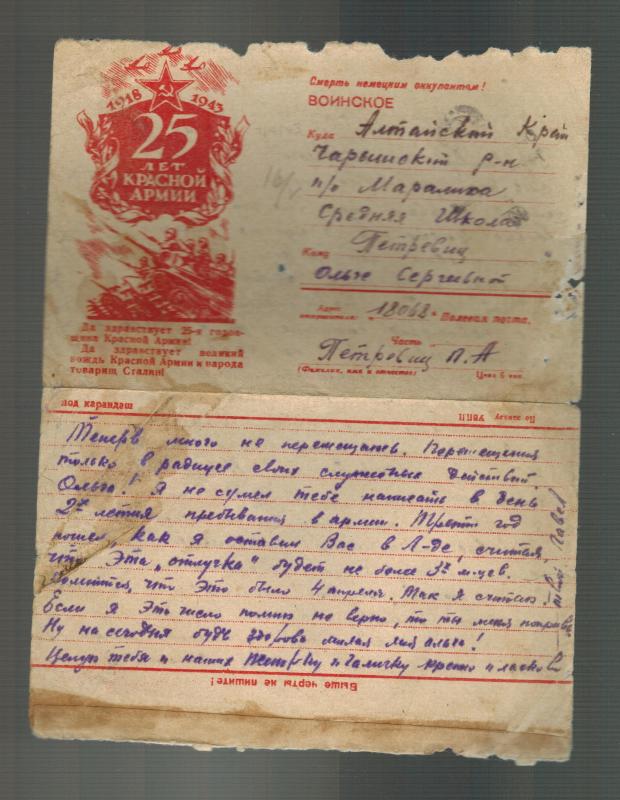 1918 1943
25
ЛЕТ
КРАСНОЙ
АРМИИ
Да здравствует 25-я годов-
щина Красной Армии!
Да здравствует великий
вождь Красной Армии и народа
товарищ Сталин!
Смерть немецким оккупантам!
ВОИНСКОЕ
Куда Алтайский Край
Чарышский р-н
п/о Маралиха
Средняя Школа
Кому Петревиц
Ольге Сергеевной
Адрес отправителя: 18068 Полевая почта,
Часть
Петровиц П. А
(Фамилия, имя и отчество) Цена 5 коп.
под карандаш По заказу УВПП
Теперь много не перемещаюсь. Перемещения
только в радиусе своих служебных действий.
Ольга! Я не сумел тебе написать в день
2х летия пребывания в армии. Третий год
пошел, как я оставил Вас в Л-де, считая
что эта „отлучка" будет не более 3х м-цев.
что это было 4 апреля. Так я считаю!
Если я это число помню не верно, то ты меня поправь
Ну на сегодня будь здорова милая моя
Целую тебя и наших и Галичку крепко и ласково
твой Павел
Выше черты не пишите!